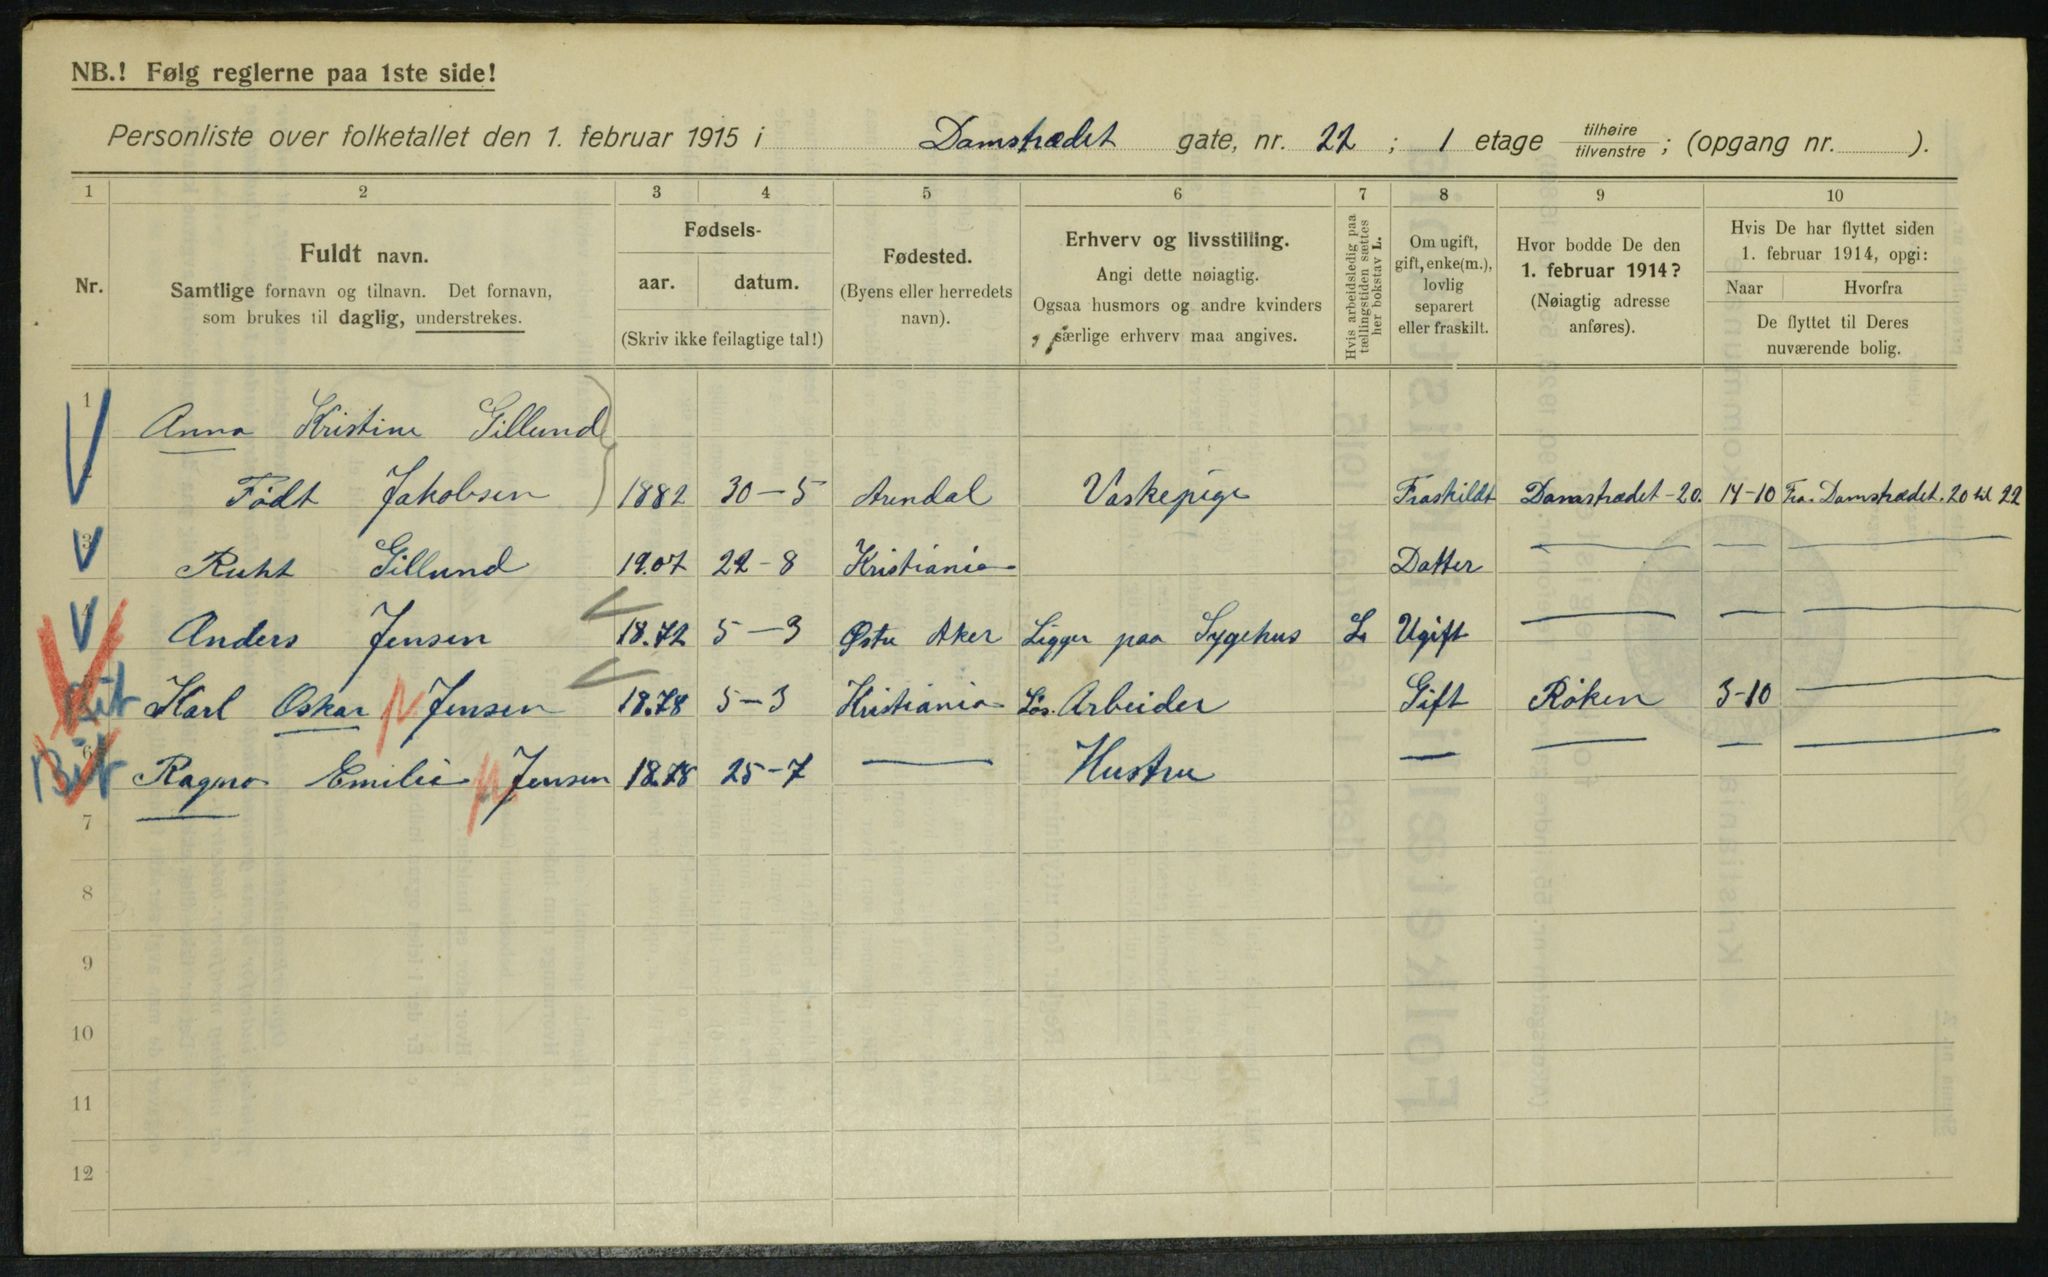 NB.! Følg reglerne paa 1ste side!
Personliste over folketallet den 1. februar 1915 i Damstrædet gate, nr. 22 ; 1 etage tilhøire tilvenstre ; (opgang nr. ).
1 2 3 4 5 6 7 8 9 10
Nr.
Fuldt navn.
Samtlige fornavn og tilnavn. Det fornavn,
som brukes til daglig, understrekes.
Fødsels-
aar. datum.
(Skriv ikke feilagtige tal!)
Fødested.
(Byens eller herredets
navn).
Erhverv og livsstilling.
Angi dette nøiagtig.
Ogsaa husmors og andre kvinders
særlige erhverv maa angives.
Hvis arbeidsledig paa
tællingstiden sættes
her bokstav L.
Om ugift,
gift, enke(m.),
lovlig
separert
eller fraskilt.
Hvor bodde De den
1. februar 1914?
(Nøiagtig adresse
anføres).
Hvis De har flyttet siden
1. februar 1914, opgi:
Naar Hvorfra
De flyttet til Deres
nuværende bolig.
1 Anna Kristine Gillund
Født Jakobsen 1882 30-5 Arendal Vaskepige Fraskildt Damstrædet-20. 14-10 Fra. Damstrædet. 20 til 22
3 Ruht Gillund 19.07 22-8 Kristiania Datter — — —
4 Anders Jensen 18.72 5-3 Østre Aker Ligger paa Sygehus L. Ugift — — —
5 Bit Karl Oskar Jensen 18.78 5-3 Kristiania Løs. Arbeider Gift Røken 3-10 —
6 Bit Ragna Emilie Jensen 18.78 25-7 — Hustru — — — —
7
8
9
10
11
12